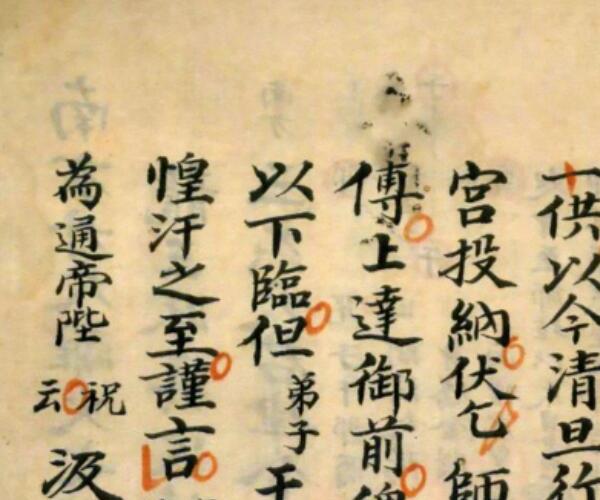 供以今清旦行
宮投納伏乞師
傅上達御前
以下臨但弟子干
惶汗之至謹言
為通帝陛
祝云汲